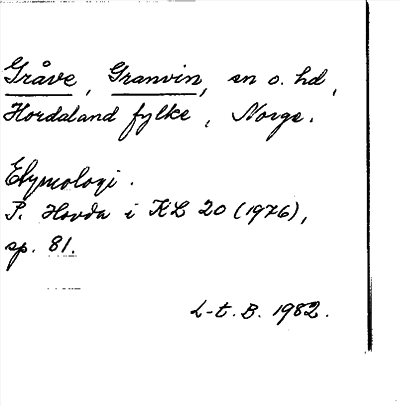 Gråve, Granvin, sn o. hd,
Hordaland fylke, Norge.
Etymologi.
P. Hovda i KL 20 (1976),
sp. 81.
L-t. B. 1982.